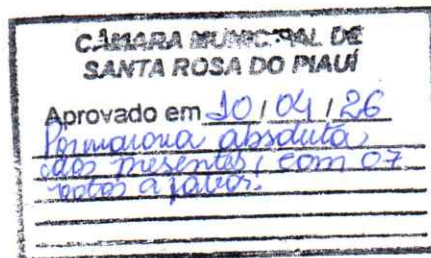 CÂMARA MUNICIPAL DE
SANTA ROSA DO PIAUÍ
Aprovado em 10 / 04 / 26
Por maioria absoluta
dos presentes, com 07
votos a favor.